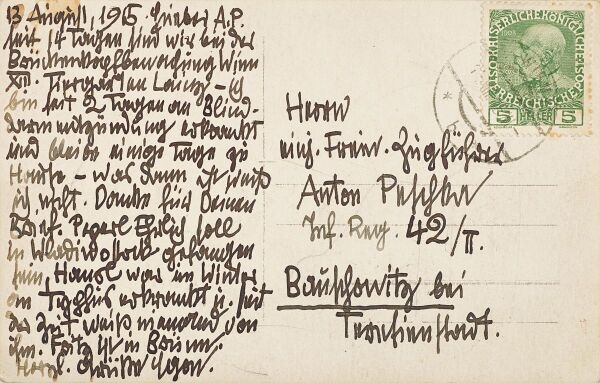 13 August, 1915. Lieber A.P.
seit 14 Tagen sind wir bei der
Brückenkopfbewachung Wien
XII. Tiergarten Lainz –
bin seit 2 Tagen an Blind-
darmentzündung erkrankt
und bleibe einige Tage zu
Hause – was dann ist weiß
ich nicht. Danke für Deinen
Brief. Peperl Ehrlich soll
in Wladiwostock gefangen
sein, Hansl war im Winter
an Typhus erkrankt u. seit
der Zeit weiß niemand von
ihm. Fritz ist in Brünn.
Herzl. Grüße Egon.
Herrn
einj. Freiw. Zugführer
Anton Peschka
Inf. Reg. 42/II.
Bauschowitz bei
Teresienstadt.
KAISERLICHE KÖNIGLICHE
ÖSTERREICHISCHE POST
1908
5 HELLER 5